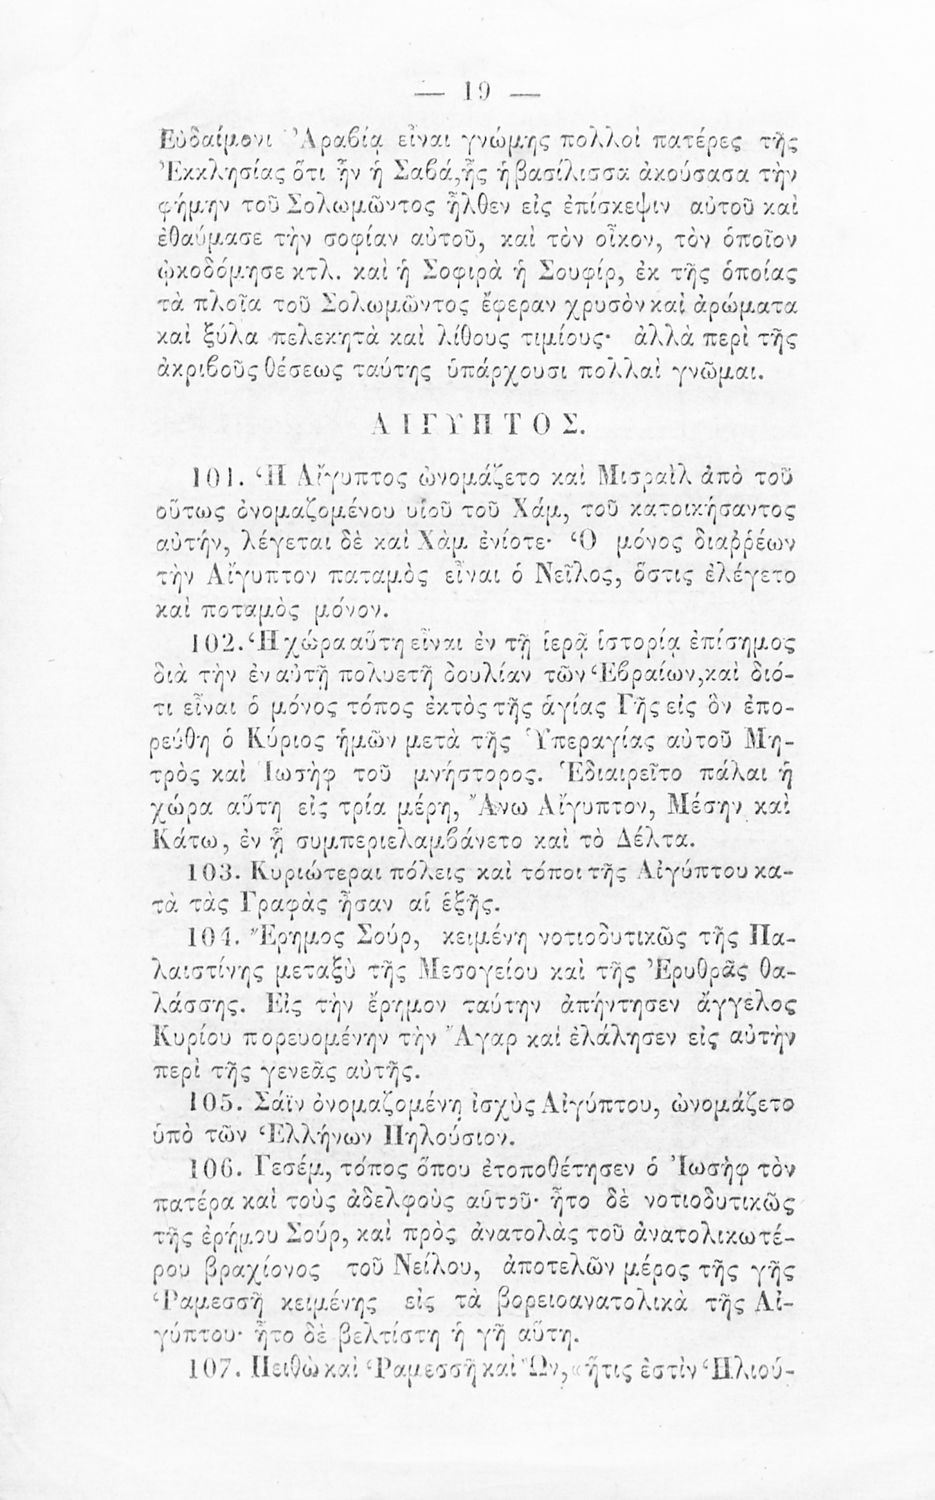 — 19 —
Εὐδαίμονι Ἀραβίᾳ εἶναι γνώμης πολλοὶ πατέρες τῆς
Ἐκκλησίας ὅτι ἦν ἡ Σαβά, ἧς ἡ βασίλισσα ἀκούσασα τὴν
φήμην τοῦ Σολωμῶντος ἦλθεν εἰς ἐπίσκεψιν αὐτοῦ καὶ
ἐθαύμασε τὴν σοφίαν αὐτοῦ, καὶ τὸν οἶκον, τὸν ὁποῖον
ᾠκοδόμησε κτλ. καὶ ἡ Σοφιρὰ ἡ Σουφίρ, ἐκ τῆς ὁποίας
τὰ πλοῖα τοῦ Σολωμῶντος ἔφεραν χρυσὸν καὶ ἀρώματα
καὶ ξύλα πελεκητὰ καὶ λίθους τιμίους· ἀλλὰ περὶ τῆς
ἀκριβοῦς θέσεως ταύτης ὑπάρχουσι πολλαὶ γνῶμαι.
ΑΙΓΥΠΤΟΣ.
101. Ἡ Αἴγυπτος ὠνομάζετο καὶ Μισραῒλ ἀπὸ τοῦ
οὕτως ὀνομαζομένου υἱοῦ τοῦ Χάμ, τοῦ κατοικήσαντος
αὐτήν, λέγεται δὲ καὶ Χὰμ ἐνίοτε· Ὁ μόνος διαῤῥέων
τὴν Αἴγυπτον παταμὸς εἶναι ὁ Νεῖλος, ὅστις ἐλέγετο
καὶ ποταμὸς μόνον.
102. Ἡ χώρα αὕτη εἶναι ἐν τῇ ἱερᾷ ἱστορίᾳ ἐπίσημος
διὰ τὴν ἐν αὐτῇ πολυετῆ δουλίαν τῶν Ἑβραίων, καὶ διό-
τι εἶναι ὁ μόνος τόπος ἐκτὸς τῆς ἁγίας Γῆς εἰς ὃν ἐπο-
ρεύθη ὁ Κύριος ἡμῶν μετὰ τῆς Ὑπεραγίας αὐτοῦ Μη-
τρὸς καὶ Ἰωσὴφ τοῦ μνήστορος. Ἐδιαιρεῖτο πάλαι ἡ
χώρα αὕτη εἰς τρία μέρη, Ἄνω Αἴγυπτον, Μέσην καὶ
Κάτω, ἐν ᾗ συμπεριελαμβάνετο καὶ τὸ Δέλτα.
103. Κυριώτεραι πόλεις καὶ τόποι τῆς Αἰγύπτου κα-
τὰ τὰς Γραφὰς ἦσαν αἱ ἑξῆς.
104. Ἔρημος Σούρ, κειμένη νοτιοδυτικῶς τῆς Πα-
λαιστίνης μεταξὺ τῆς Μεσογείου καὶ τῆς Ἐρυθρᾶς θα-
λάσσης. Εἰς τὴν ἔρημον ταύτην ἀπήντησεν ἄγγελος
Κυρίου πορευομένην τὴν Ἄγαρ καὶ ἐλάλησεν εἰς αὐτὴν
περὶ τῆς γενεᾶς αὐτῆς.
105. Σάϊν ὀνομαζομένη ἰσχὺς Αἰγύπτου, ὠνομάζετο
ὑπὸ τῶν Ἑλλήνων Πηλούσιον.
106. Γεσέμ, τόπος ὅπου ἐτοποθέτησεν ὁ Ἰωσὴφ τὸν
πατέρα καὶ τοὺς ἀδελφοὺς αὑτοῦ· ἦτο δὲ νοτιοδυτικῶς
τῆς ἐρήμου Σούρ, καὶ πρὸς ἀνατολὰς τοῦ ἀνατολικωτέ-
ρου βραχίονος τοῦ Νείλου, ἀποτελῶν μέρος τῆς γῆς
Ῥαμεσσῆ κειμένης εἰς τὰ βορειοανατολικὰ τῆς Αἰ-
γύπτου· ἦτο δὲ βελτίστη ἡ γῆ αὕτη.
107. Πειθὼ καὶ Ῥαμεσσῆ καὶ Ὤν, «ἥτις ἐστὶν Ἡλιού-